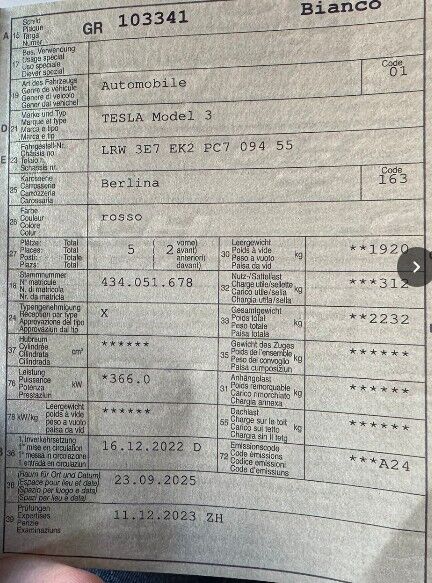 A 15 Schild Plaque Targa Numer GR 103341 Bianco
17 Bes. Verwendung
Usage spécial
Uso speciale
Diever spezial
19 Art des Fahrzeugs
Genre de véhicule
Genere di veicolo
Gener dal vehichel
Automobile
Code
01
D 21 Marke und Typ
Marque et type
Marca e tipo
Marca e tip
TESLA Model 3
E 23 Fahrgestell-Nr.
Châssis no
Telaio n.
Schassis nr.
LRW 3E7 EK2 PC7 094 55
25 Karosserie
Carrosserie
Carrozzeria
Carossaria
Berlina
Code
163
26 Farbe
Couleur
Colore
Colur
rosso
27 Plätze: Total
Places: Total
Posti: Totale
Plazs: Total
5 ( 2 vorne)
avant)
anteriori)
davant)
30 Leergewicht
Poids à vide
Peso a vuoto
Paisa da vid
kg **1920
18 Stammnummer
N° matricule
N. di matricola
Nr. da matricla
434.051.678
32 Nutz-/Sattellast
Charge utile/sellette
Carico utile/sella
Chargia utila/sella
kg ***312
24 Typengenehmigung
Réception par type
Approvazione del tipo
Approvaziun dal tip
X
33 Gesamtgewicht
Poids total
Peso totale
Paisa totala
kg **2232
37 Hubraum
Cylindrée
Cilindrata
Cilindrada
cm³ ******
35 Gewicht des Zuges
Poids de l'ensemble
Peso del convoglio
Paisa cumposiziun
kg ******
76 Leistung
Puissance
Potenza
Prestaziun
kW *366.0
31 Anhängelast
Poids remorquable
Carico rimorchiato
Chargia annexa
kg ******
78 kW/kg Leergewicht
poids à vide
peso a vuoto
paisa da vid
******
55 Dachlast
Charge sur le toit
Carico sul tetto
Chargia sin il tetg
kg ******
36 1. Inverkehrsetzung
1re mise en circulation
1a messa in circolazione
1. entrada en circulaziun
16.12.2022 D
72 Emissionscode
Code émissions
Codice emissioni
Code d'emissiuns
***A24
38 (Raum für Ort und Datum)
(Espace pour lieu et date)
(Spazio per luogo e data)
(Spazi per lieu e data)
23.09.2025
39 Prüfungen
Expertises
Perizie
Examinaziuns
11.12.2023 ZH